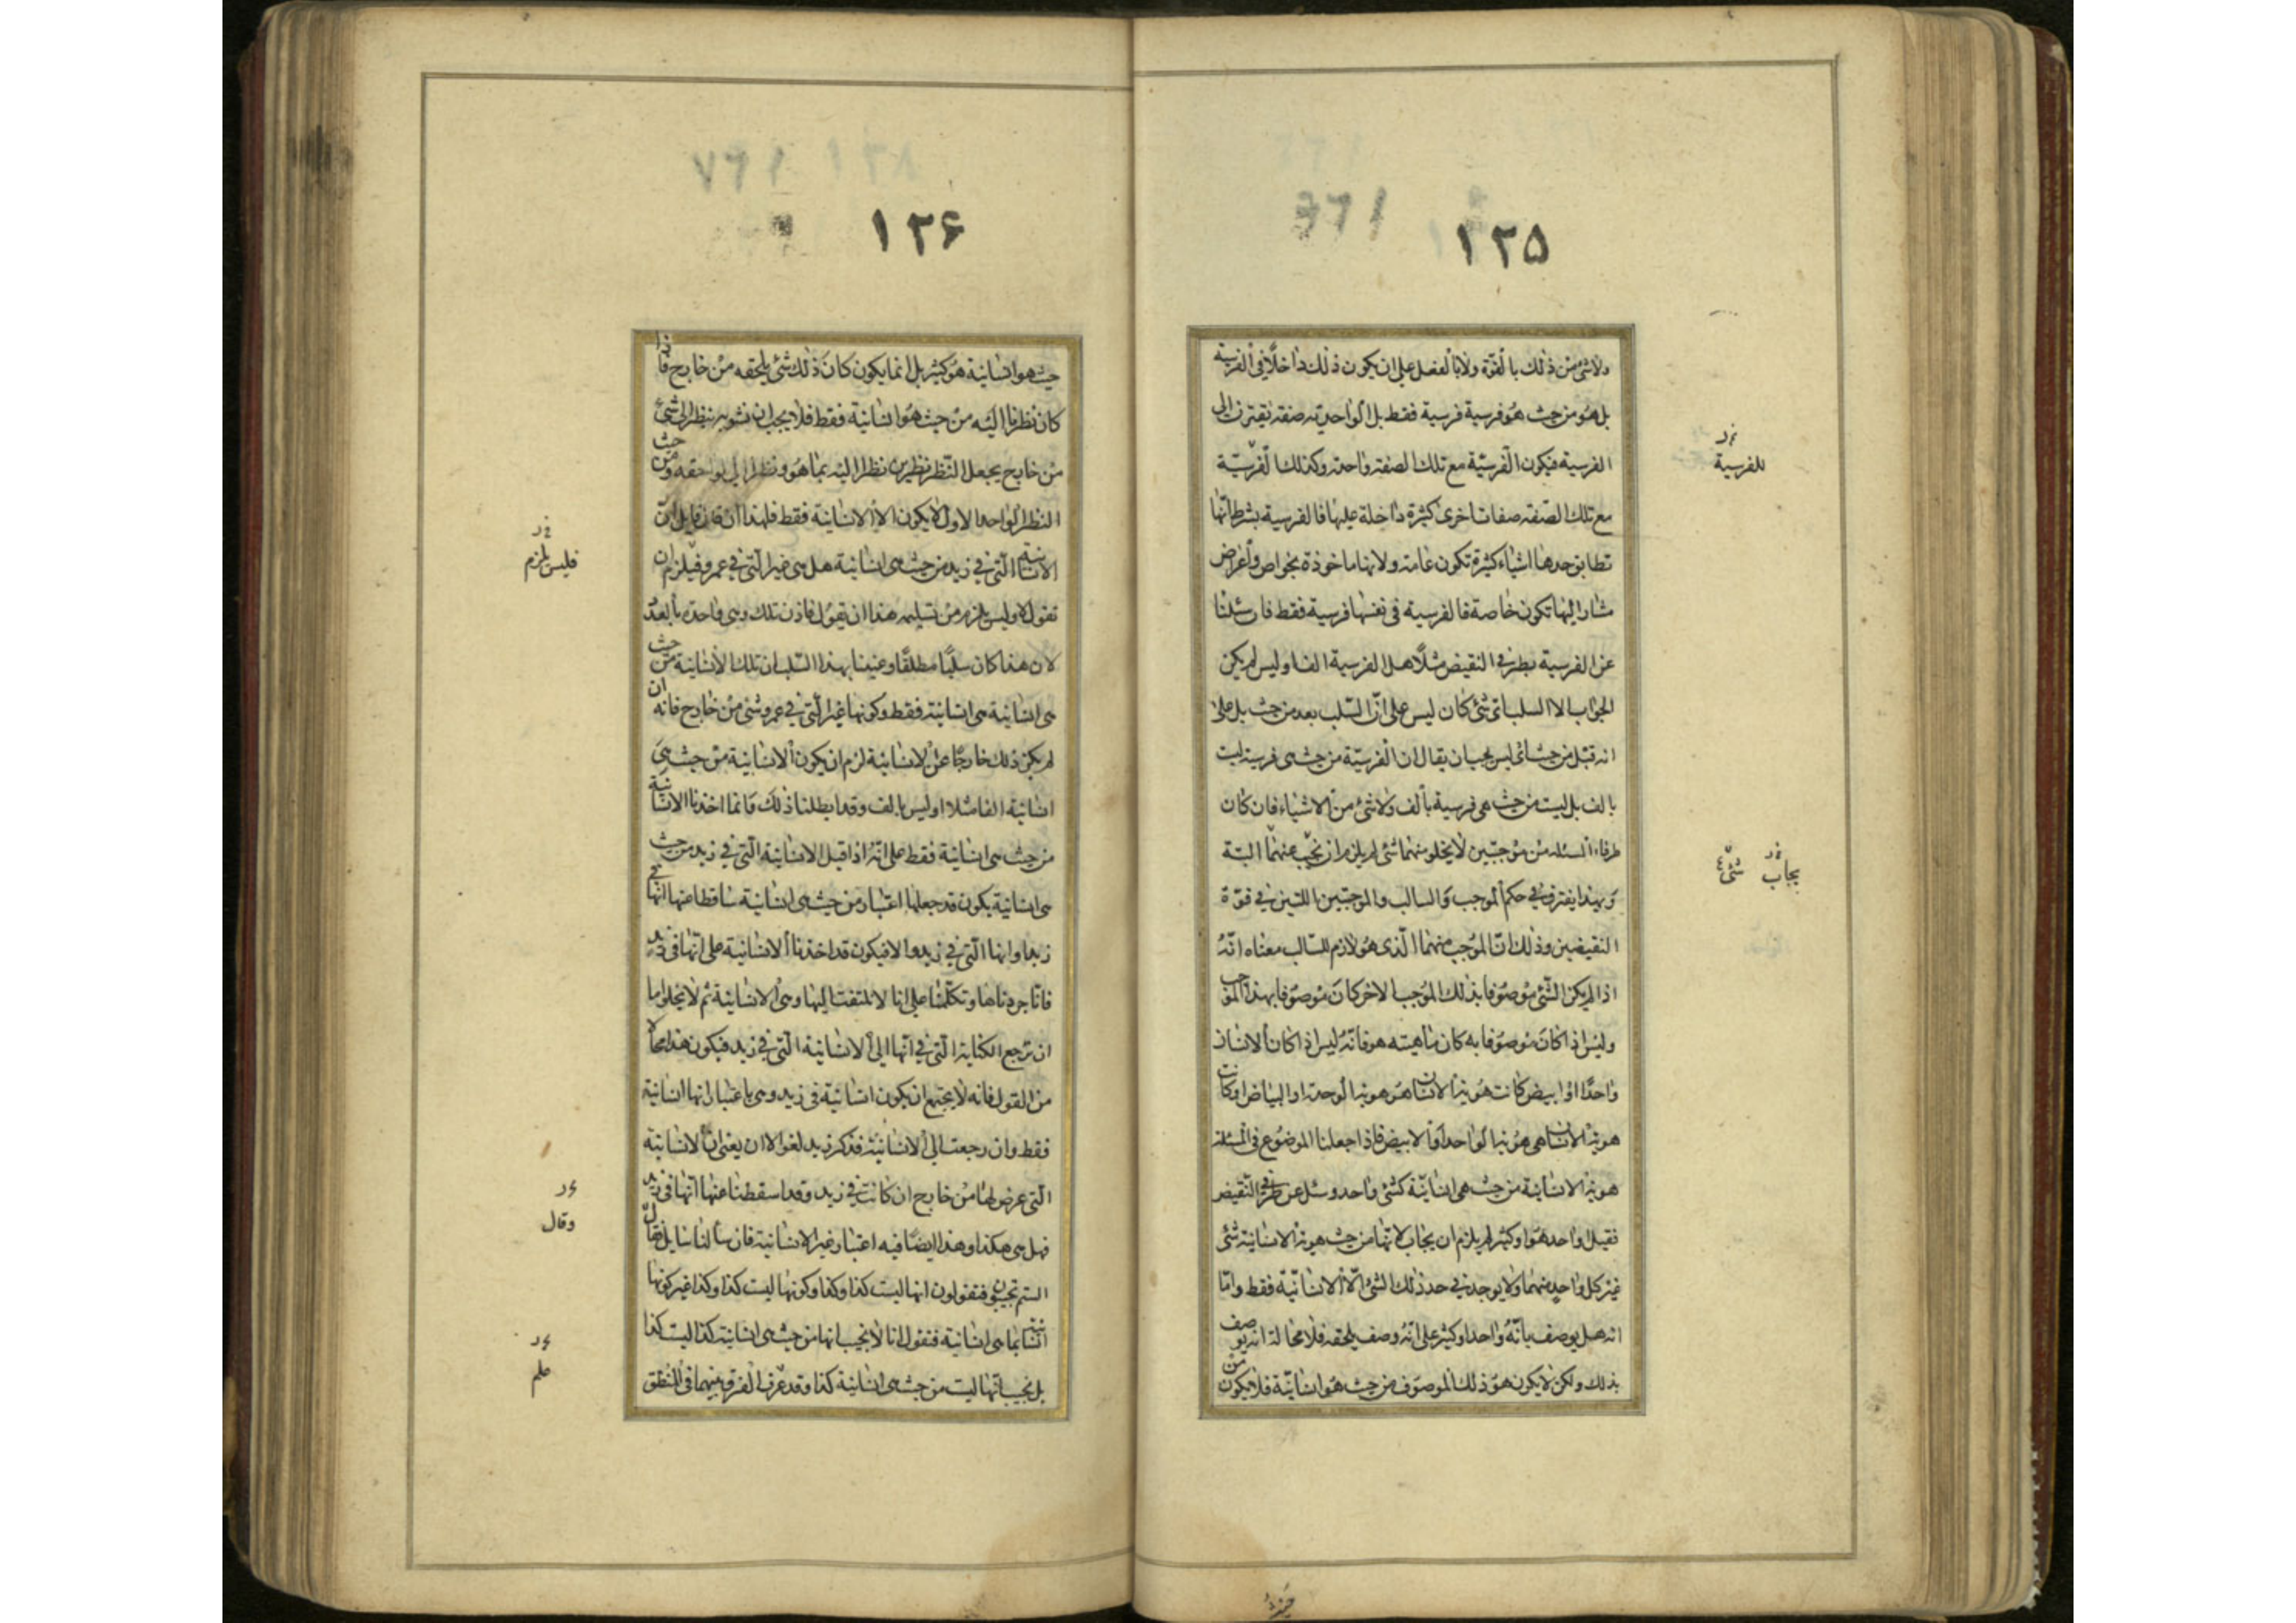 ١٢٥
ولا شئ من ذلك بالقوة ولا بالفعل على ان يكون ذلك داخلا في الفرسية
بل هو من حيث هو فرسية فرسية فقط بل الواحدية صفة تقترن الى
الفرسية فيكون الفرسية مع تلك الصفة واحدة وكذلك الفرسية
مع تلك الصفة صفات اخرى كثيرة داخلة عليها فالفرسية بشرط انها
تطابق حدها اشياء كثيرة تكون عامة ولانها ماخوذة بخواص واعراض
مشار اليها تكون خاصة فالفرسية في نفسها فرسية فقط فان سئلنا
عن الفرسية بطرفي النقيض مثلا هل الفرسية الف او ليس لم يكن
الجواب الا السلب اى شئ كان ليس على ان السلب بعد من حيث بل على
انه قبل من حيث اى ليس يجب ان يقال ان الفرسية من حيث هى فرسية ليست
بالف بل ليست من حيث هى فرسية بالف ولا شئ من الاشياء فان كان
طرفا المسئلة من موجبتين لا يخلو منهما شئ لم يلزم ان نجيب عنهما البتة
وبهذا يفترق في حكم الموجب والسالب والموجبتين اللتين في قوة
النقيضين وذلك ان الموجب منهما الذى هو لازم للسالب معناه انه
اذا لم يكن الشئ موصوفا بذلك الموجب الاخر كان موصوفا بهذا الموجب
وليس اذا كان موصوفا به كان ماهيته هو فانه ليس اذا كان الانسان
واحدا او ابيض كانت هوية الانسان هو هوية الوحدة او البياض او كانت
هوية الانسان هى هوية الواحد او الابيض فاذا جعلنا الموضوع في المسئلة
هوية الانسانية من حيث هى انسانية كشئ واحد وسئل عن طرفي النقيض
فقيل اواحد هو او كثير لم يلزم ان يجاب لانها من حيث هوية الانسانية شئ
غير كل واحد منهما ولا يوجد في حد ذلك الشئ الا الانسانية فقط واما
انه هل يوصف بانه واحد او كثير على انه وصف يلحقه فلا محالة انه يوصف
بذلك ولكن لا يكون هو ذلك الموصوف من حيث هو انسانية فلا يكون من
للفرسية
يجاب شئ
١٢٦
حيث هو انسانية هو كثير بل انما يكون كان ذلك شئ يلحقه من خارج فاذا
كان نظرنا اليه من حيث هو انسانية فقط فلا يجب ان نشوبه بنظر الى شئ
من خارج يجعل النظر نظرين نظر اليه بما هو ونظر الى لواحقه ومن حيث
النظر الواحد الاول لا يكون الا الانسانية فقط فلهذا ان قال قايل ان
الانسانية التى في زيد من حيث هى انسانية هل هى غير التى في عمرو فيلزم ان
تقول لا وليس يلزم من تسليمه هذا ان تقول فاذن تلك وهى واحدة بالعدد
لان هذا كان سلبا مطلقا وعنينا بهذا السلب ان تلك الانسانية من حيث
هى انسانية هى انسانية فقط وكونها غير التى في عمرو شئ من خارج فانه ان
لم يكن ذلك خارجا عن الانسانية لزم ان يكون الانسانية من حيث هى
انسانية الفا مثلا او ليس بالف وقد ابطلنا ذلك وانما اخذنا الانسانية
من حيث هى انسانية فقط على انه اذا قيل الانسانية التى في زيد من حيث
هى انسانية يكون قد جعلها اعتبار من حيث هى انسانية ساقطا عنها انها في
زيد او انها التى في زيد والا فيكون قد اخذنا الانسانية على انها في زيد
فانا جردناها وتكلمنا على انا لا نلتفت اليها وهى الانسانية ثم لا يخلو اما
ان ترجع الكناية التى في انها الى الانسانية التى في زيد فيكون هذا محالا
من القول فانه لا يجتمع ان يكون انسانية في زيد وهى باعتبار انها انسانية
فقط وان رجعت الى الانسانية فذكر زيد لغو الا ان يعنى ان الانسانية
التى عرض لها من خارج ان كانت في زيد وقد اسقطنا عنها انها في زيد
فهل هى هكذا وهذا ايضا فيه اعتبار غير الانسانية فان سألنا سايل فقال
الستم تجيبون فتقولون انها ليست كذا وكذا وكونها ليست كذا وكذا غير كونها
انسانية بما هى انسانية فنقول انا لا نجيب انها من حيث هى انسانية كذا ليست كذا
بل نجيب انها ليست من حيث هى انسانية كذا وقد عرف الفرق بينهما في المنطق
فليس يلزم
وقال
علم